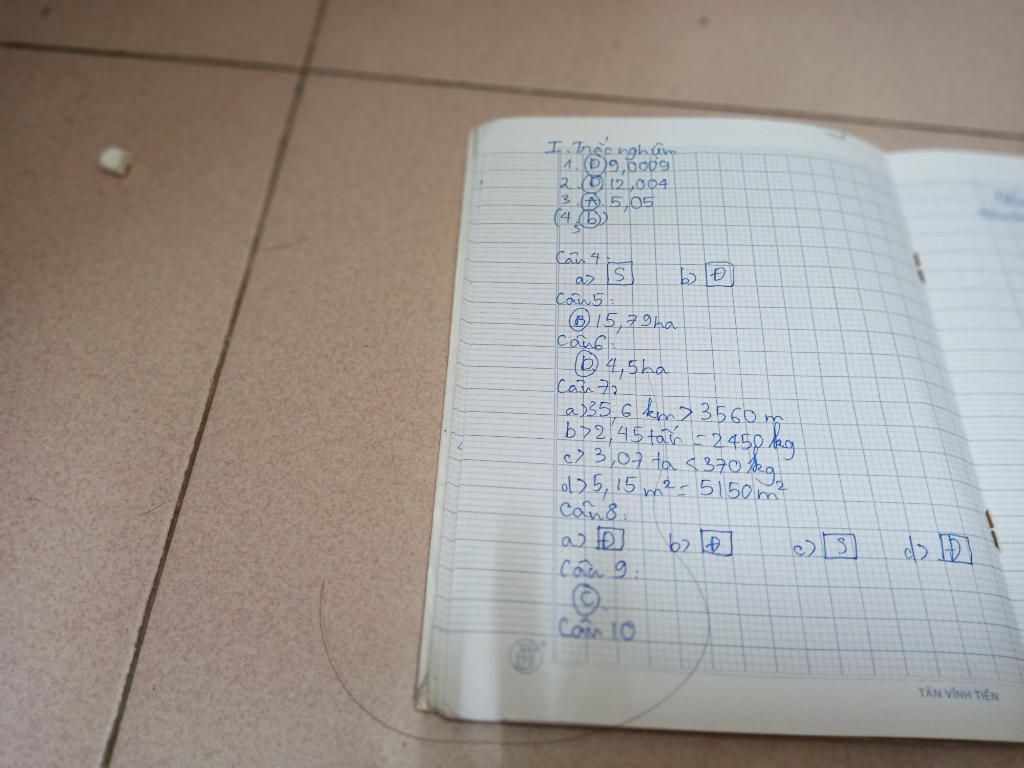 I. Trắc nghiệm
1. D 9,0009
2. D 12,004
3. A. 5,05
(4, b)
Câu 4:
a> S b> Đ
Câu 5:
B 15,79ha
Câu 6:
D 4,5ha
Câu 7:
a> 35,6 km > 3560 m
b> 2,45 tấn = 2450 kg
c> 3,07 tạ < 370 kg
d> 5,15 m² = 5150 m²
Câu 8:
a> Đ b> Đ c> S d> Đ
Câu 9:
C
Câu 10
TÂN VĨNH TIẾN